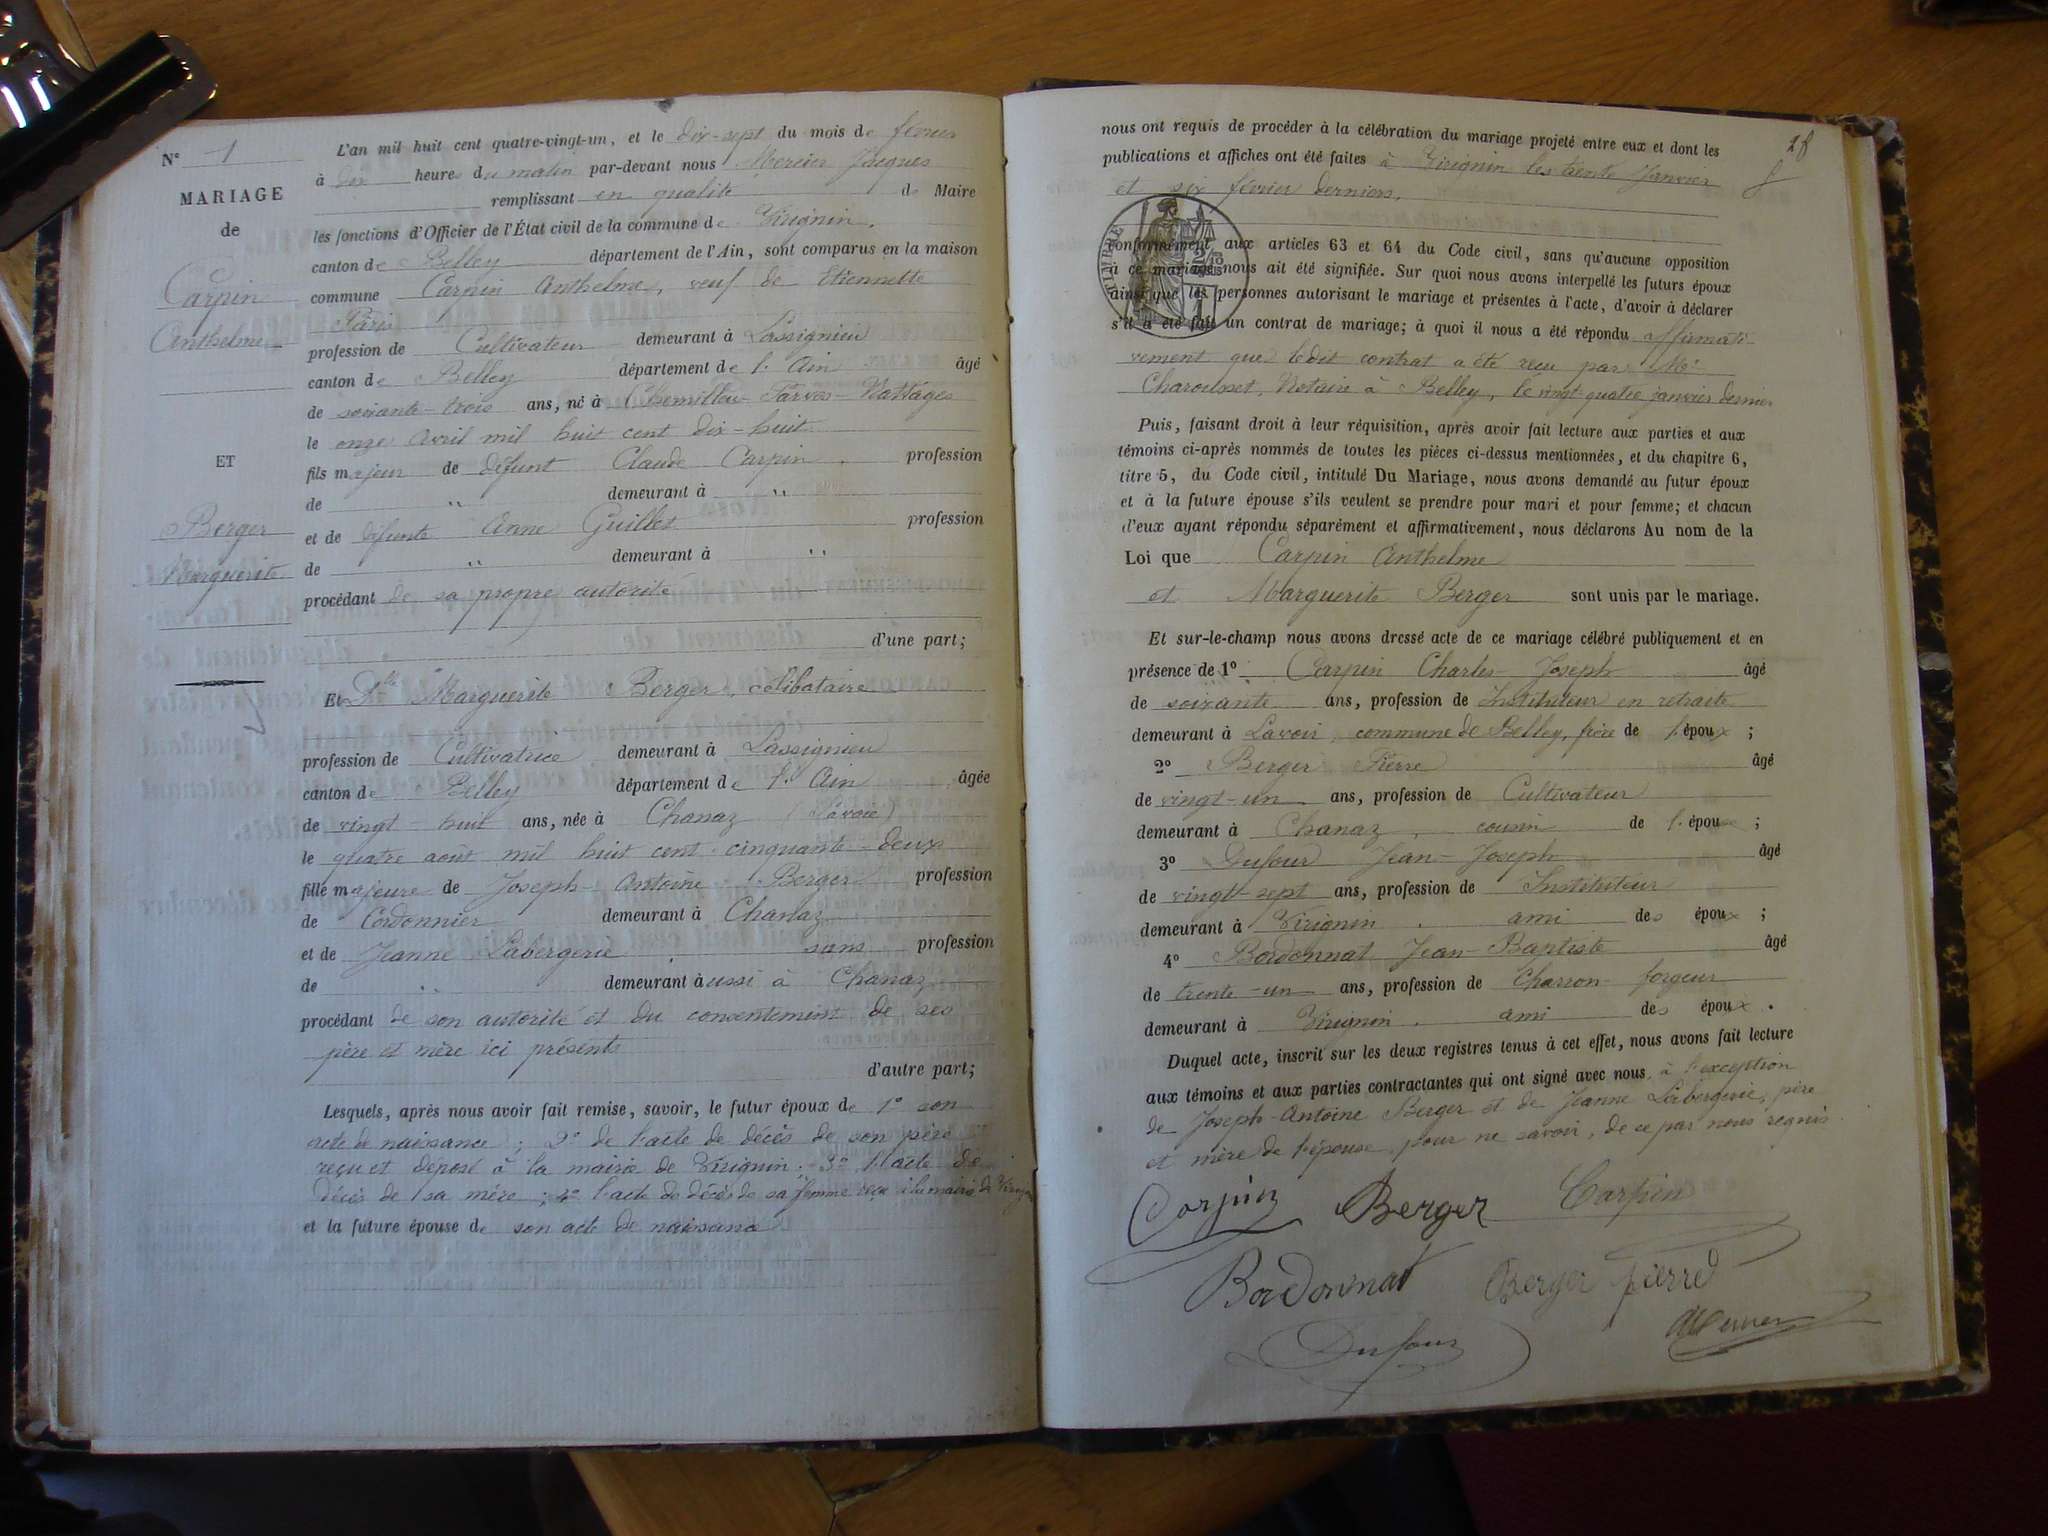 N° 1
MARIAGE
de
Carpin
Anthelme
ET
Berger
Marguerite
L'an mil huit cent quatre-vingt-un, et le dix-sept du mois de février
à dix heures du matin par-devant nous Mercier Jacques
remplissant en qualité de Maire
les fonctions d'Officier de l'État civil de la commune de Virignin,
canton de Belley département de l'Ain, sont comparus en la maison
commune Carpin Anthelme, veuf de Etiennette
Páris
profession de Cultivateur demeurant à Lassignieu
canton de Belley département de l'Ain âgé
de soixante-trois ans, né à Chemillieu-Parves-Nattages
le onze Avril mil huit cent dix-huit
fils majeur de défunt Claude Carpin, profession
de " demeurant à "
et de défunte Anne Guillet profession
de " demeurant à "
procédant de sa propre autorité
d'une part;
Et Dlle Marguerite Berger, célibataire
profession de Cultivatrice demeurant à Lassignieu
canton de Belley département de l'Ain âgée
de vingt-huit ans, née à Chanaz (Savoie)
le quatre août mil huit cent cinquante-deux
fille majeure de Joseph-Antoine Berger profession
de Cordonnier demeurant à Chanaz
et de Jeanne Labergerie, sans profession
de " demeurant aussi à Chanaz
procédant de son autorité et du consentement de ses
père et mère ici présents
d'autre part;
Lesquels, après nous avoir fait remise, savoir, le futur époux de 1° son
acte de naissance; 2° de l'acte de décès de son père
reçu et déposé à la mairie de Virignin; 3° l'acte de
décès de sa mère; 4° l'acte de décès de sa femme reçu à la mairie de Virignin
et la future épouse de son acte de naissance
28
nous ont requis de procéder à la célébration du mariage projeté entre eux et dont les
publications et affiches ont été faites à Virignin les trente Janvier
et six février derniers,
TIMBRE
conformément aux articles 63 et 64 du Code civil, sans qu'aucune opposition
à ce mariage nous ait été signifiée. Sur quoi nous avons interpellé les futurs époux
ainsi que les personnes autorisant le mariage et présentes à l'acte, d'avoir à déclarer
s'il a été fait un contrat de mariage; à quoi il nous a été répondu affirmati
vement que ledit contrat a été reçu par Me
Charousset, Notaire à Belley, le vingt-quatre janvier dernier
Puis, faisant droit à leur réquisition, après avoir fait lecture aux parties et aux
témoins ci-après nommés de toutes les pièces ci-dessus mentionnées, et du chapitre 6,
titre 5, du Code civil, intitulé Du Mariage, nous avons demandé au futur époux
et à la future épouse s'ils veulent se prendre pour mari et pour femme; et chacun
d'eux ayant répondu séparément et affirmativement, nous déclarons Au nom de la
Loi que Carpin Anthelme
et Marguerite Berger sont unis par le mariage.
Et sur-le-champ nous avons dressé acte de ce mariage célébré publiquement et en
présence de 1° Carpin Charles-Joseph âgé
de soixante ans, profession de Instituteur en retraite
demeurant à Lavoir, commune de Belley, frère de l'époux;
2° Berger Pierre âgé
de vingt-un ans, profession de Cultivateur
demeurant à Chanaz, cousin de l'épouse;
3° Dufour Jean-Joseph âgé
de vingt-sept ans, profession de Instituteur
demeurant à Virignin, ami des époux;
4° Bordonnat Jean-Baptiste âgé
de trente-un ans, profession de Charron-forgeur
demeurant à Virignin, ami des époux.
Duquel acte, inscrit sur les deux registres tenus à cet effet, nous avons fait lecture
aux témoins et aux parties contractantes qui ont signé avec nous, à l'exception
de Joseph-Antoine Berger et de Jeanne Labergerie, père
et mère de l'épouse, pour ne savoir, de ce par nous requis
Carpin Berger Carpin
Bordonnat Berger pierre
Dufour Mercier